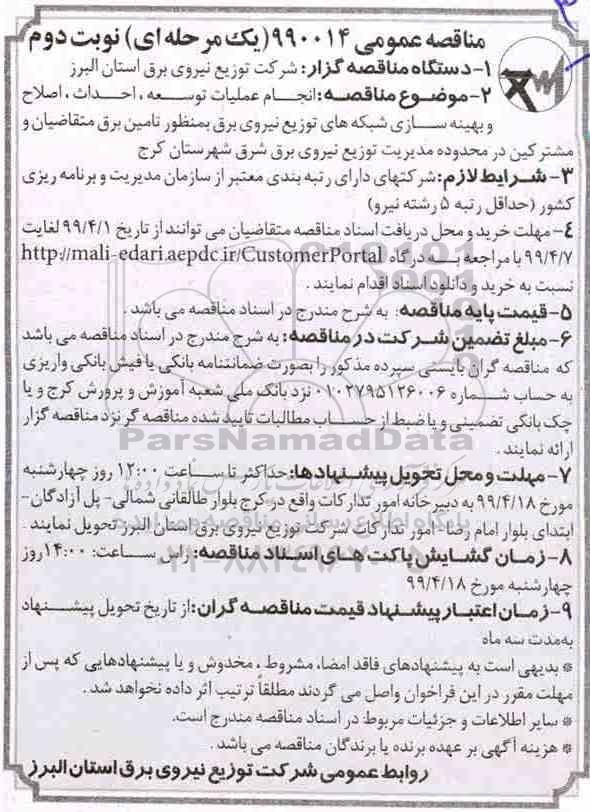 مناقصه عمومی ۹۹۰۰۱۴ (یک مرحله ای) نوبت دوم
۱- دستگاه مناقصه گزار: شرکت توزیع نیروی برق استان البرز
۲- موضوع مناقصه: انجام عملیات توسعه، احداث، اصلاح
و بهینه سازی شبکه های توزیع نیروی برق بمنظور تامین برق متقاضیان و
مشترکین در محدوده مدیریت توزیع نیروی برق شرق شهرستان کرج
۳- شرایط لازم: شرکتهای دارای رتبه بندی معتبر از سازمان مدیریت و برنامه ریزی
کشور (حداقل رتبه ۵ رشته نیرو)
۴- مهلت خرید و محل دریافت اسناد مناقصه متقاضیان می توانند از تاریخ ۹۹/۴/۱ لغایت
۹۹/۴/۷ با مراجعه به درگاه http://mali-edari.aepdc.ir/CustomerPortal
نسبت به خرید و دانلود اسناد اقدام نمایند.
۵- قیمت پایه مناقصه: به شرح مندرج در اسناد مناقصه می باشد.
۶- مبلغ تضمین شرکت در مناقصه: به شرح مندرج در اسناد مناقصه می باشد
که مناقصه گران بایستی سپرده مذکور را بصورت ضمانتنامه بانکی یا فیش بانکی واریزی
به حساب شماره ۰۱۰۲۷۹۵۱۲۶۰۰۶ نزد بانک ملی شعبه آموزش و پرورش کرج و یا
چک بانکی تضمینی و یا ضبط از حساب مطالبات تایید شده مناقصه گر نزد مناقصه گزار
ارائه نمایند.
ParsNamadData
۷- مهلت و محل تحویل پیشنهادها: حداکثر تا ساعت ۱۲:۰۰ روز چهارشنبه
مورخ ۹۹/۴/۱۸ به دبیرخانه امور تدارکات واقع در کرج بلوار طالقانی شمالی- پل آزادگان-
ابتدای بلوار امام رضا- امور تدارکات شرکت توزیع نیروی برق استان البرز تحویل نمایند.
۸- زمان گشایش پاکت های اسناد مناقصه: راس ساعت: ۱۴:۰۰ روز
چهارشنبه مورخ ۹۹/۴/۱۸
۹- زمان اعتبار پیشنهاد قیمت مناقصه گران: از تاریخ تحویل پیشنهاد
به‌مدت سه ماه
* بدیهی است به پیشنهادهای فاقد امضا، مشروط، مخدوش و یا پیشنهادهایی که پس از
مهلت مقرر در این فراخوان واصل می گردند مطلقاً ترتیب اثر داده نخواهد شد.
* سایر اطلاعات و جزئیات مربوط در اسناد مناقصه مندرج است.
* هزینه آگهی بر عهده برنده یا برندگان مناقصه می باشد.
روابط عمومی شرکت توزیع نیروی برق استان البرز